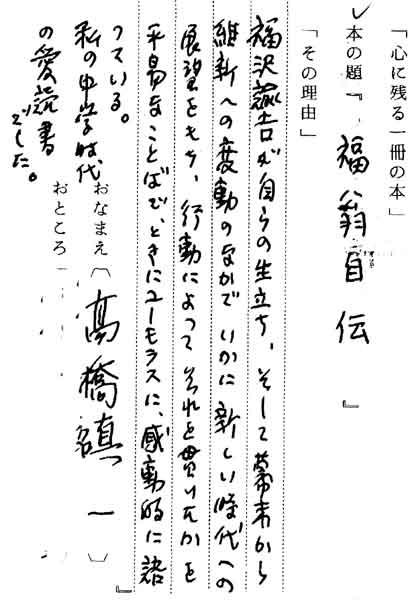 「心に残る一冊の本」
本の題『福翁自伝』
「その理由」
福沢諭吉が自らの生立ち、そして幕末から
維新への変動のなかで いかに新しい時代への
展望をもち、行動によって それを貫いたかを
平易なことばで、ときにユーモラスに、感動的に語
っている。
私の中学時代
の愛読書
でした。
おなまえ 高橋 一
おところ